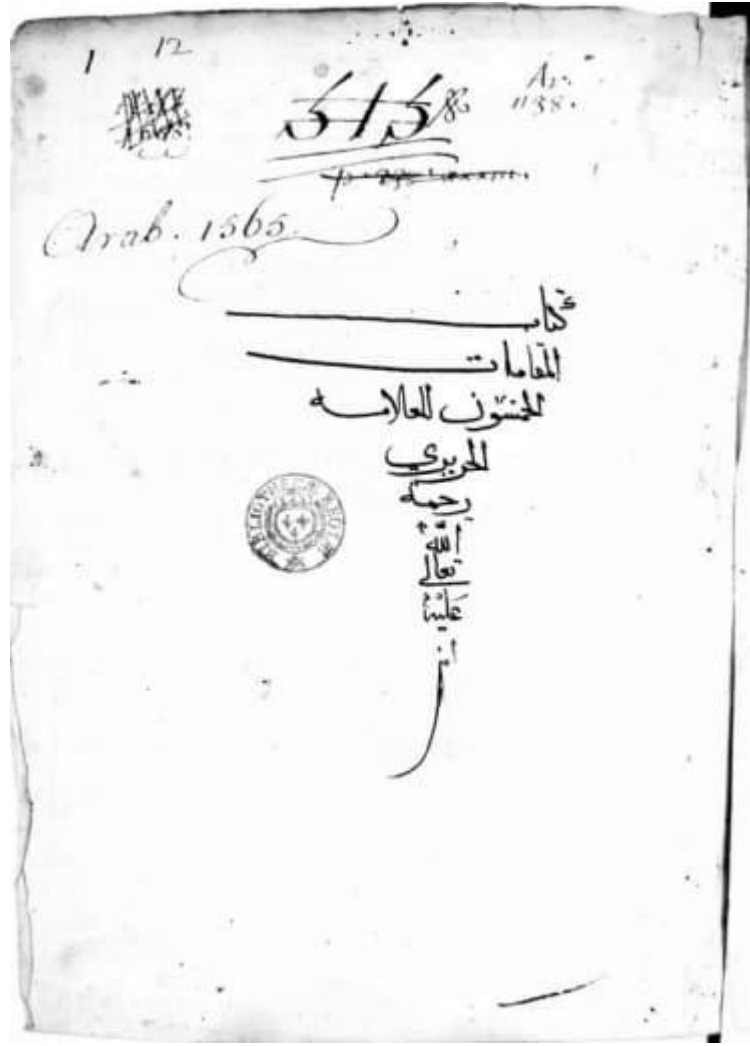 1 12
Ar.
1138.
515
Arab. 1565.
كتاب
المقامات
الخمسون للعلامه
الحريري
رحمة
الله
تعالى
عليه